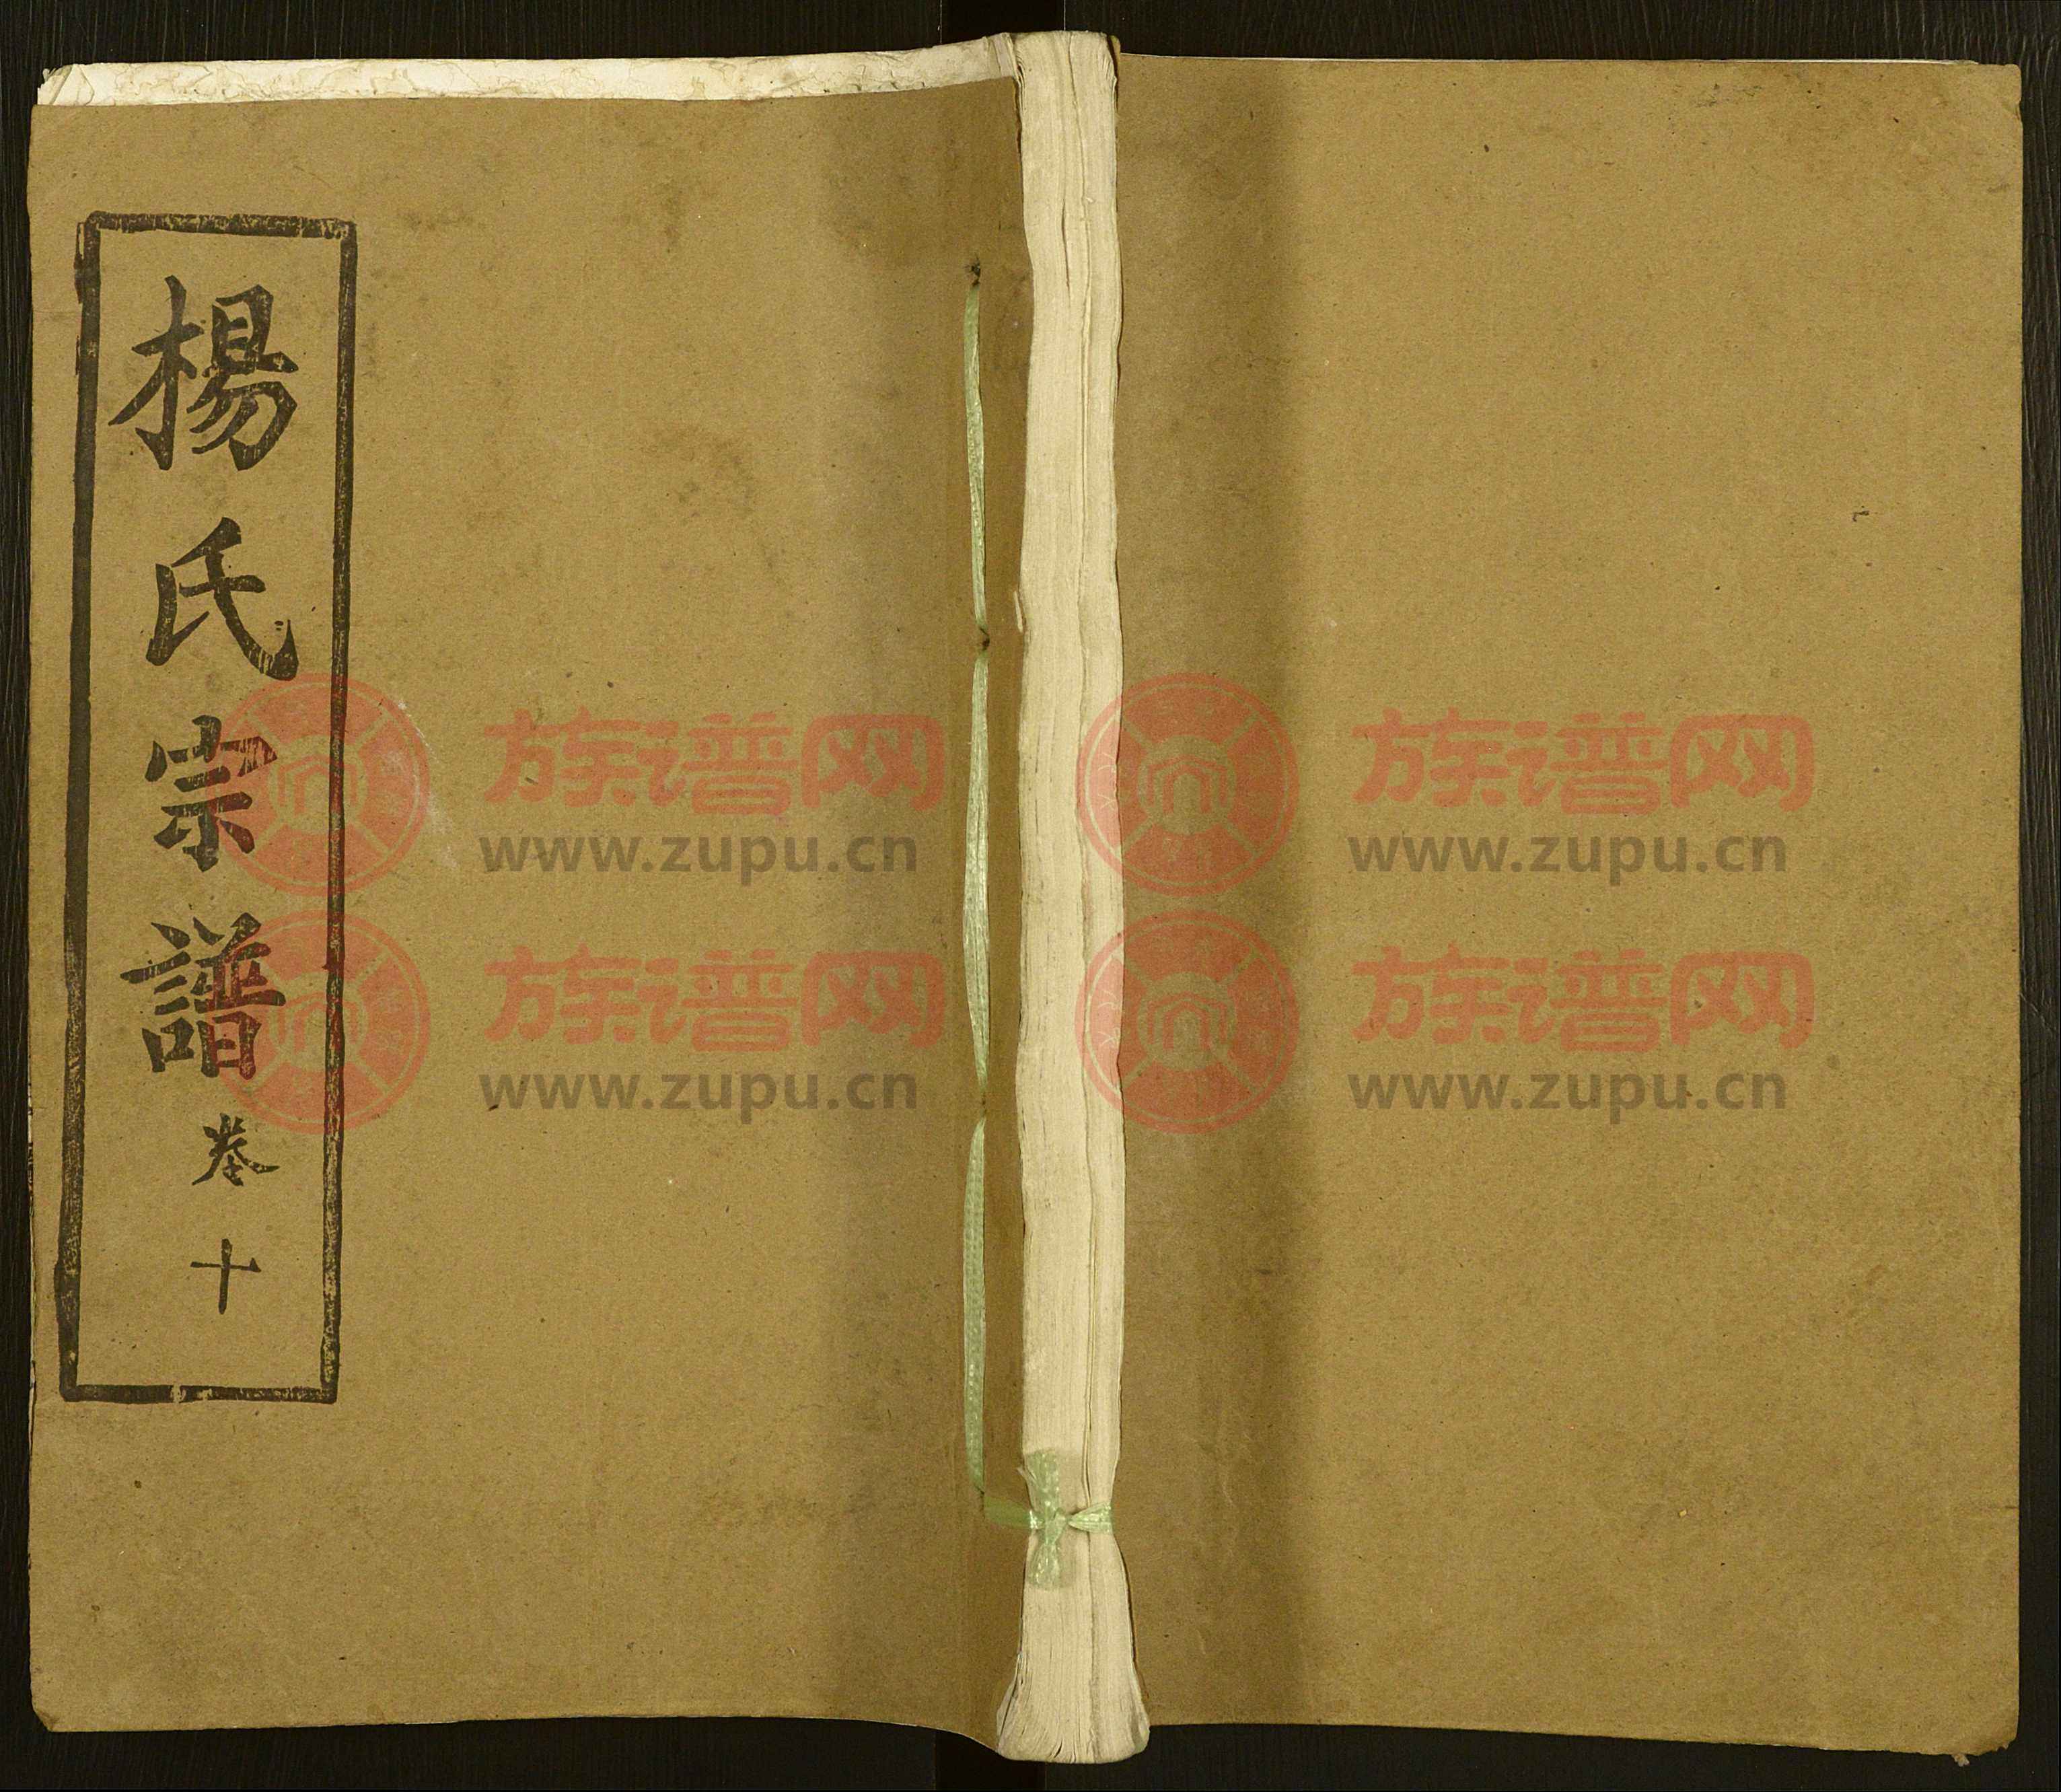 楊氏宗譜 卷十
族谱网
www.zupu.cn
族谱网
www.zupu.cn
族谱网
www.zupu.cn
族谱网
www.zupu.cn